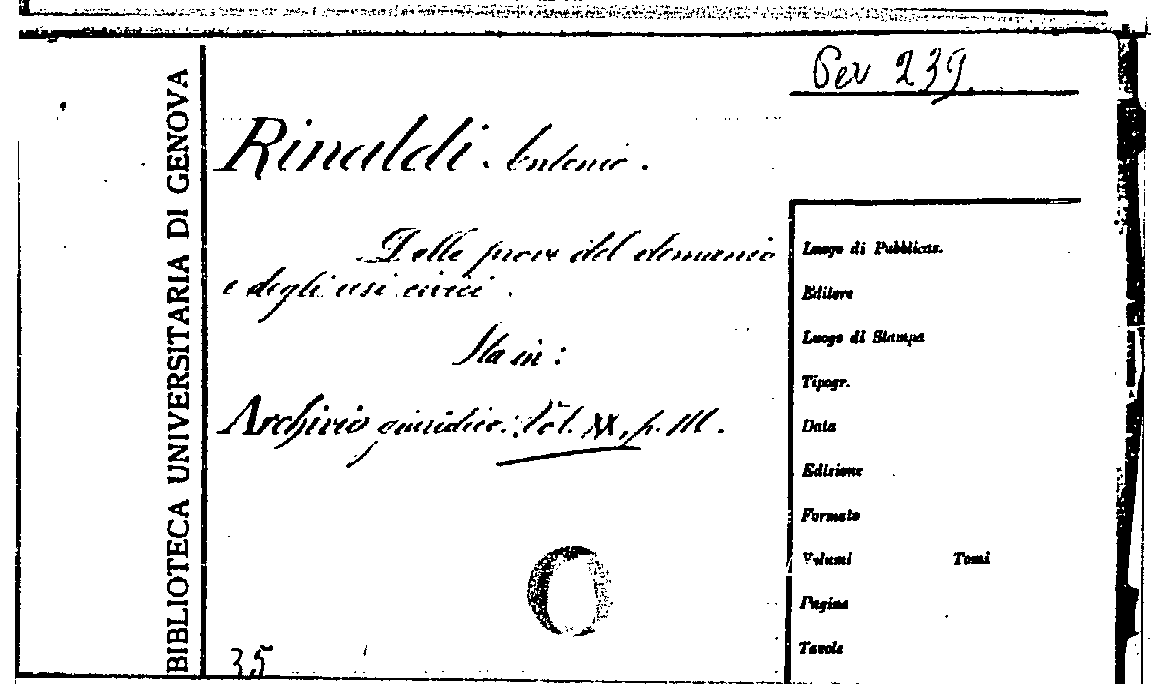 BIBLIOTECA UNIVERSITARIA DI GENOVA
Per 239
Rinaldi. Antonio.
Delle prove del demanio
e degli usi civici.
Sta in:
Archivio giuridico. Vol. XX, p. 111.
35
Luogo di Pubblicaz.
Editore
Luogo di Stampa
Tipogr.
Data
Edizione
Formato
Volumi Tomi
Pagine
Tavole